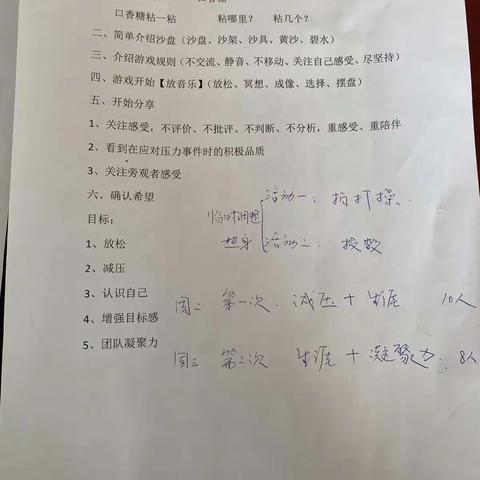 口香糖粘一粘 粘哪里？ 粘几个？
二、简单介绍沙盘（沙盘、沙架、沙具、黄沙、碧水）
三、介绍游戏规则（不交流、静音、不移动、关注自己感受、尽坚持）
四、游戏开始【放音乐】（放松、冥想、成像、选择、摆盘）
五、开始分享
1、关注感受，不评价、不批评、不判断、不分析，重感受、重陪伴
2、看到在应对压力事件时的积极品质
3、关注旁观者感受
六、确认希望
目标：
临时调整 活动一：拍打操.
热身 活动二：按数
1、放松
2、减压
3、认识自己
周二 第一次：减压+生涯 10人
4、增强目标感
5、团队凝聚力
周三 第二次 生涯+凝聚力. 8人